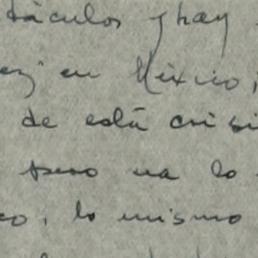 táculos y hay
ez en México,
de está crisi
pero va lo
co, lo mismo